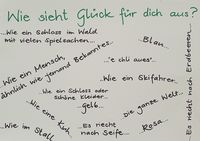 Wie sieht Glück für dich aus?
...Wie ein Schloss im Wald
mit vielen Spielsachen...
Blau...
Wie ein Mensch,
ähnlich wie jemand Bekanntes...
'e chli aues'...
...Wie ein Schloss oder
schöne Kleider...
Wie ein Skifahrer
gelb...
Die ganze Welt...
...Wie eine Kuh
Wie im Stall
...Es riecht
nach Seife...
Rosa...
...Es riecht nach Erdbeeren...